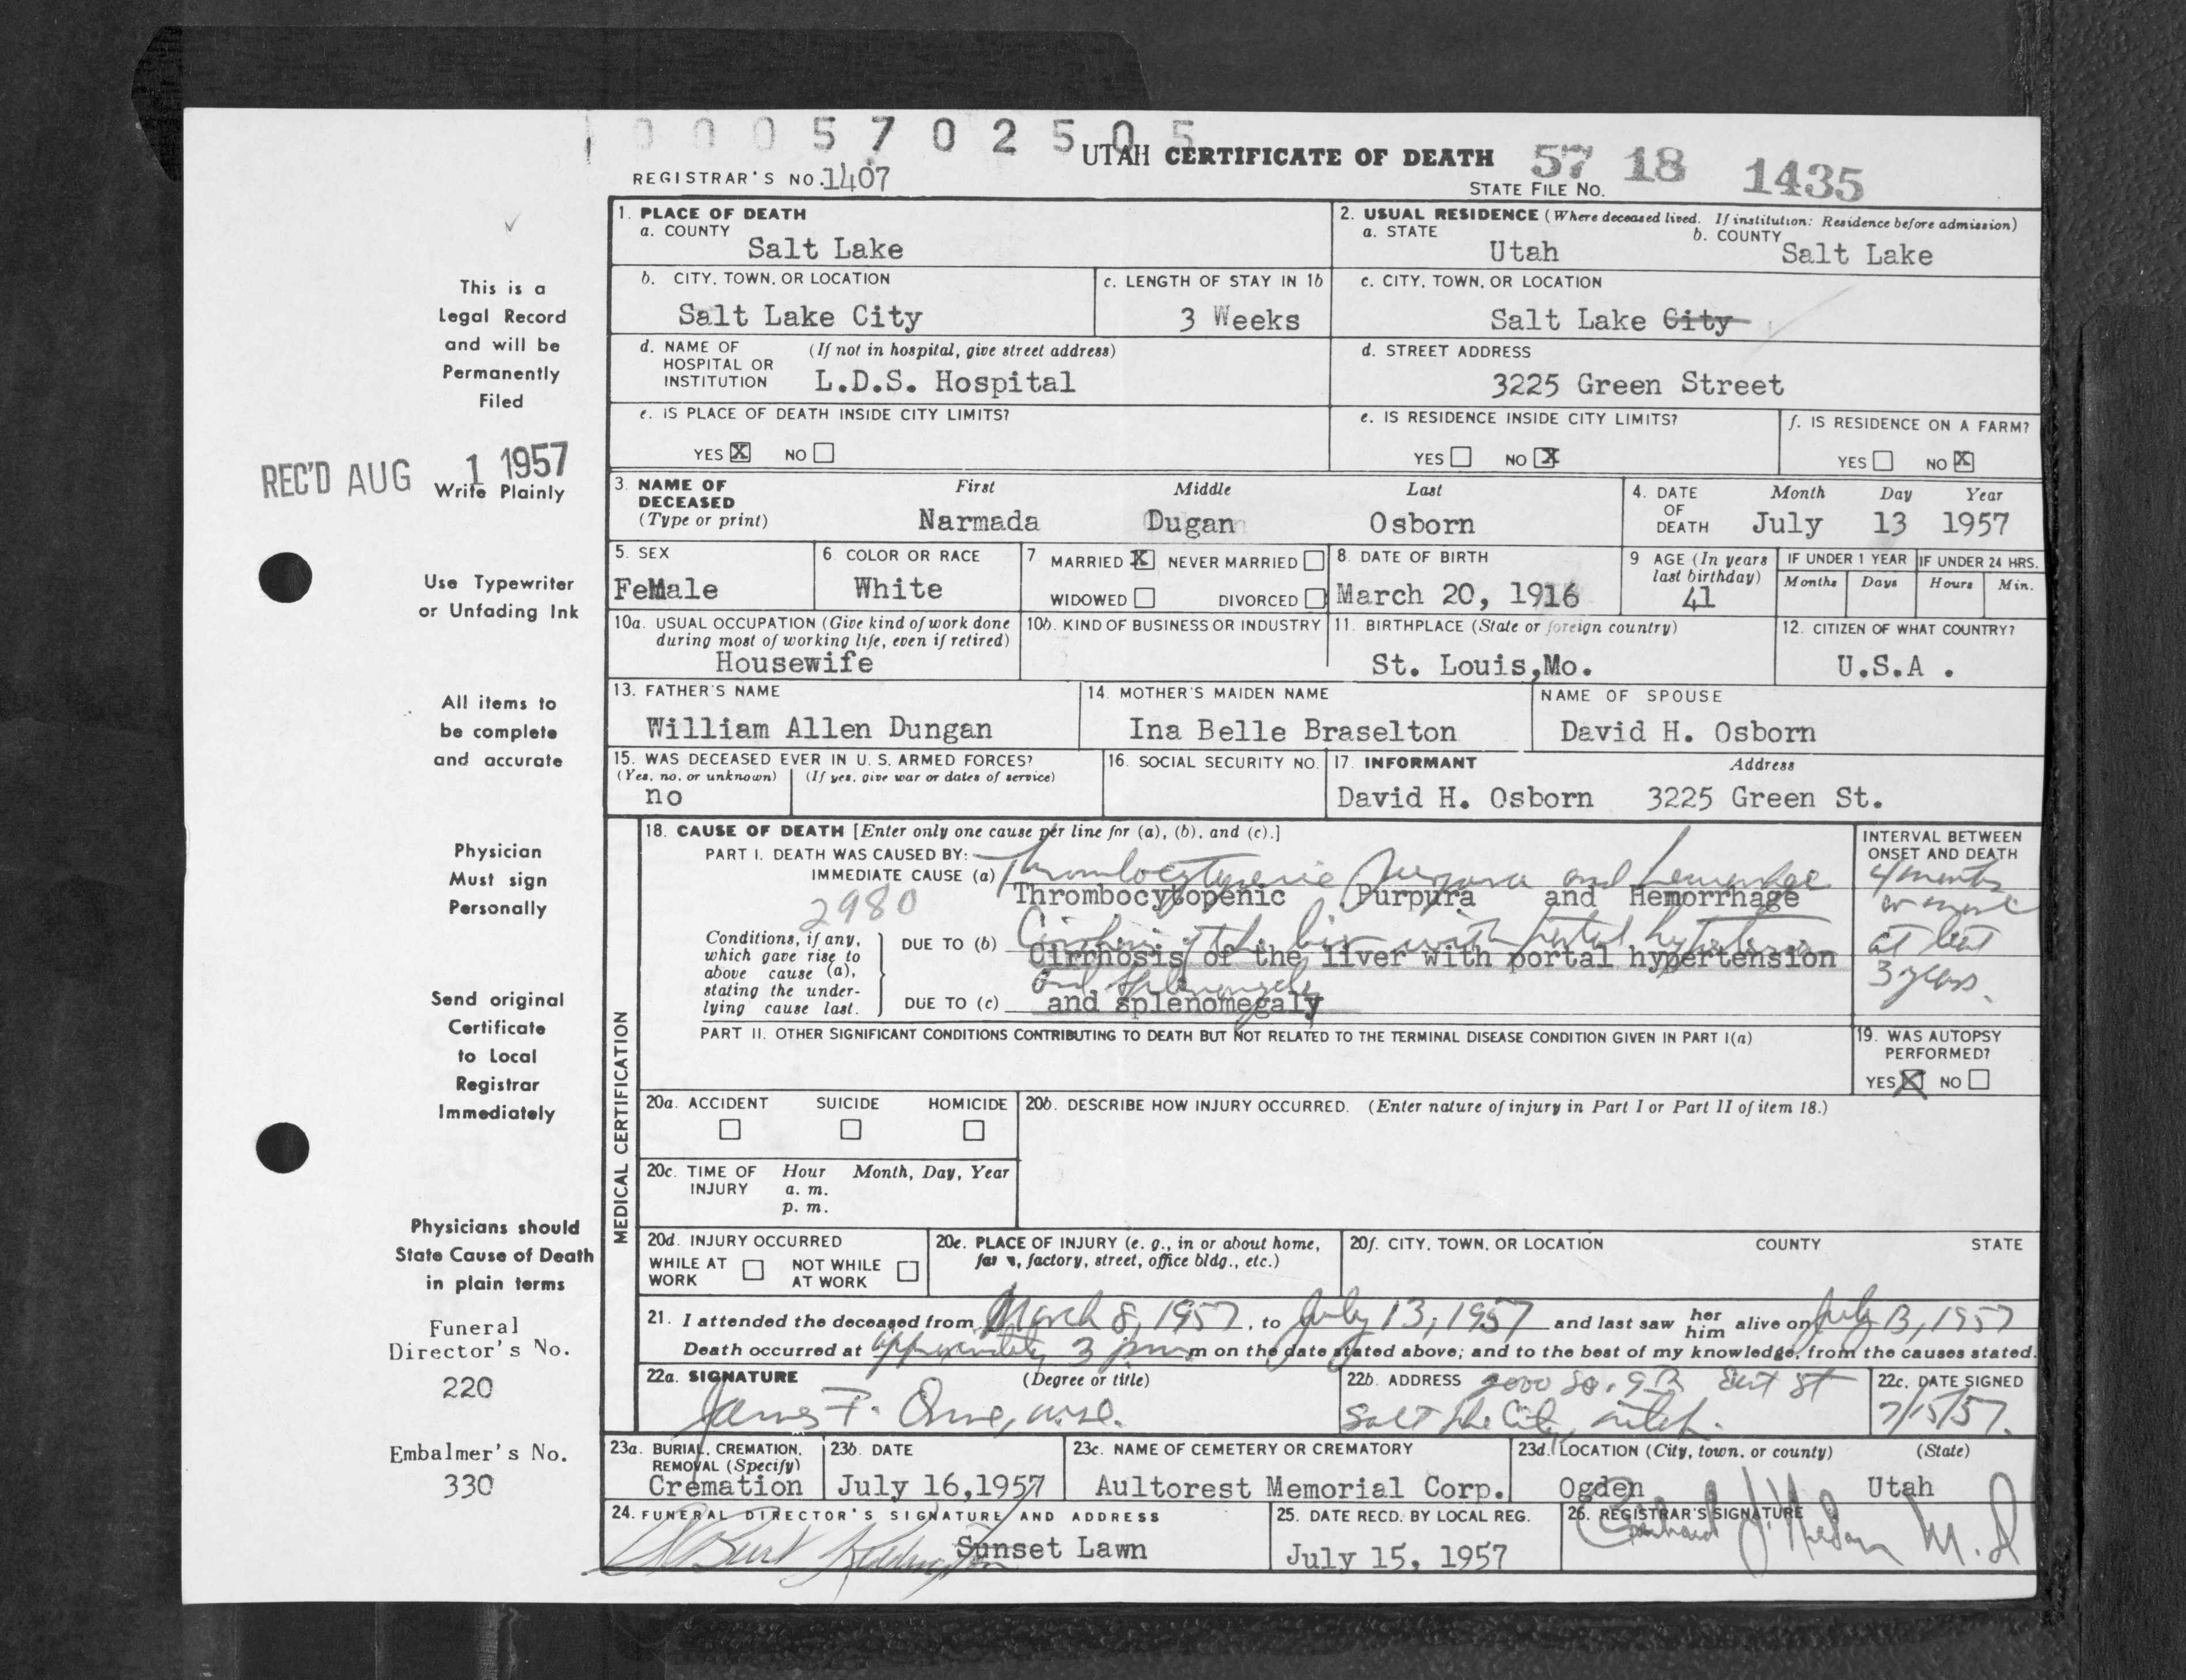 0005702505
UTAH CERTIFICATE OF DEATH 57 18 1435
REGISTRAR'S NO. 1407
STATE FILE NO.
1. PLACE OF DEATH
a. COUNTY
Salt Lake
2. USUAL RESIDENCE (Where deceased lived. If institution: Residence before admission)
a. STATE
Utah
b. COUNTY
Salt Lake
b. CITY, TOWN, OR LOCATION
Salt Lake City
c. LENGTH OF STAY IN 1b
3 Weeks
c. CITY, TOWN, OR LOCATION
Salt Lake City
d. NAME OF HOSPITAL OR INSTITUTION
(If not in hospital, give street address)
L.D.S. Hospital
d. STREET ADDRESS
3225 Green Street
e. IS PLACE OF DEATH INSIDE CITY LIMITS?
YES X NO
e. IS RESIDENCE INSIDE CITY LIMITS?
YES NO X
f. IS RESIDENCE ON A FARM?
YES NO X
3. NAME OF DECEASED
(Type or print)
First Middle Last
Narmada Dugan Osborn
4. DATE OF DEATH
Month Day Year
July 13 1957
5. SEX
FeMale
6. COLOR OR RACE
White
7 MARRIED X NEVER MARRIED
WIDOWED DIVORCED
8. DATE OF BIRTH
March 20, 1916
9 AGE (In years last birthday)
41
IF UNDER 1 YEAR
Months Days
IF UNDER 24 HRS.
Hours Min.
10a. USUAL OCCUPATION (Give kind of work done during most of working life, even if retired)
Housewife
10b. KIND OF BUSINESS OR INDUSTRY
11. BIRTHPLACE (State or foreign country)
St. Louis,Mo.
12. CITIZEN OF WHAT COUNTRY?
U.S.A .
13. FATHER'S NAME
William Allen Dungan
14. MOTHER'S MAIDEN NAME
Ina Belle Braselton
NAME OF SPOUSE
David H. Osborn
15. WAS DECEASED EVER IN U. S. ARMED FORCES?
(Yes, no, or unknown) (If yes, give war or dates of service)
no
16. SOCIAL SECURITY NO.
17. INFORMANT Address
David H. Osborn 3225 Green St.
MEDICAL CERTIFICATION
18. CAUSE OF DEATH [Enter only one cause per line for (a), (b), and (c).]
PART I. DEATH WAS CAUSED BY:
IMMEDIATE CAUSE (a) Thrombocytopenic Purpura and hemorrhage
Thrombocytopenic Purpura and Hemorrhage
2980
Conditions, if any, which gave rise to above cause (a), stating the underlying cause last.
DUE TO (b) Cirrhosis of the liver with portal hypertension
Cirrhosis of the liver with portal hypertension
and splenomegaly
DUE TO (c) and splenomegaly
INTERVAL BETWEEN ONSET AND DEATH
4 months
or more
at least
3 years.
PART II. OTHER SIGNIFICANT CONDITIONS CONTRIBUTING TO DEATH BUT NOT RELATED TO THE TERMINAL DISEASE CONDITION GIVEN IN PART I(a)
19. WAS AUTOPSY PERFORMED?
YES X NO
20a. ACCIDENT SUICIDE HOMICIDE
20b. DESCRIBE HOW INJURY OCCURRED. (Enter nature of injury in Part I or Part II of item 18.)
20c. TIME OF INJURY
Hour Month, Day, Year
a. m.
p. m.
20d. INJURY OCCURRED
WHILE AT WORK NOT WHILE AT WORK
20e. PLACE OF INJURY (e. g., in or about home, farm, factory, street, office bldg., etc.)
20f. CITY, TOWN, OR LOCATION COUNTY STATE
21. I attended the deceased from March 8, 1957, to July 13, 1957 and last saw her him alive on July 13, 1957
Death occurred at approximately 3 p m on the date stated above; and to the best of my knowledge, from the causes stated.
22a. SIGNATURE (Degree or title)
James F. Orme, M.D.
22b. ADDRESS
Salt Lake City, Utah.
22c. DATE SIGNED
7/15/57.
23a. BURIAL, CREMATION, REMOVAL (Specify)
Cremation
23b. DATE
July 16,1957
23c. NAME OF CEMETERY OR CREMATORY
Aultorest Memorial Corp.
23d. LOCATION (City, town, or county) (State)
Ogden Utah
24. FUNERAL DIRECTOR'S SIGNATURE AND ADDRESS
Sunset Lawn
25. DATE RECD. BY LOCAL REG.
July 15, 1957
26. REGISTRAR'S SIGNATURE
M.D
This is a
Legal Record
and will be
Permanently
Filed
REC'D AUG 1 1957
Write Plainly
Use Typewriter
or Unfading Ink
All items to
be complete
and accurate
Physician
Must sign
Personally
Send original
Certificate
to Local
Registrar
Immediately
Physicians should
State Cause of Death
in plain terms
Funeral
Director's No.
220
Embalmer's No.
330